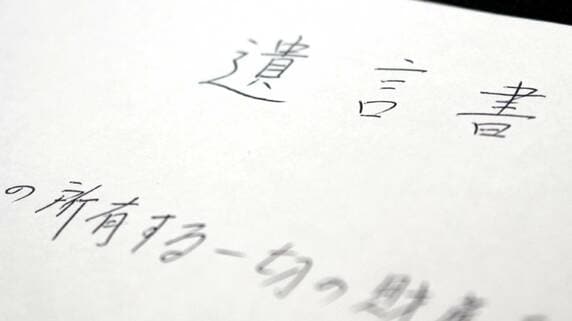 遺言書
の所有する一切の財産